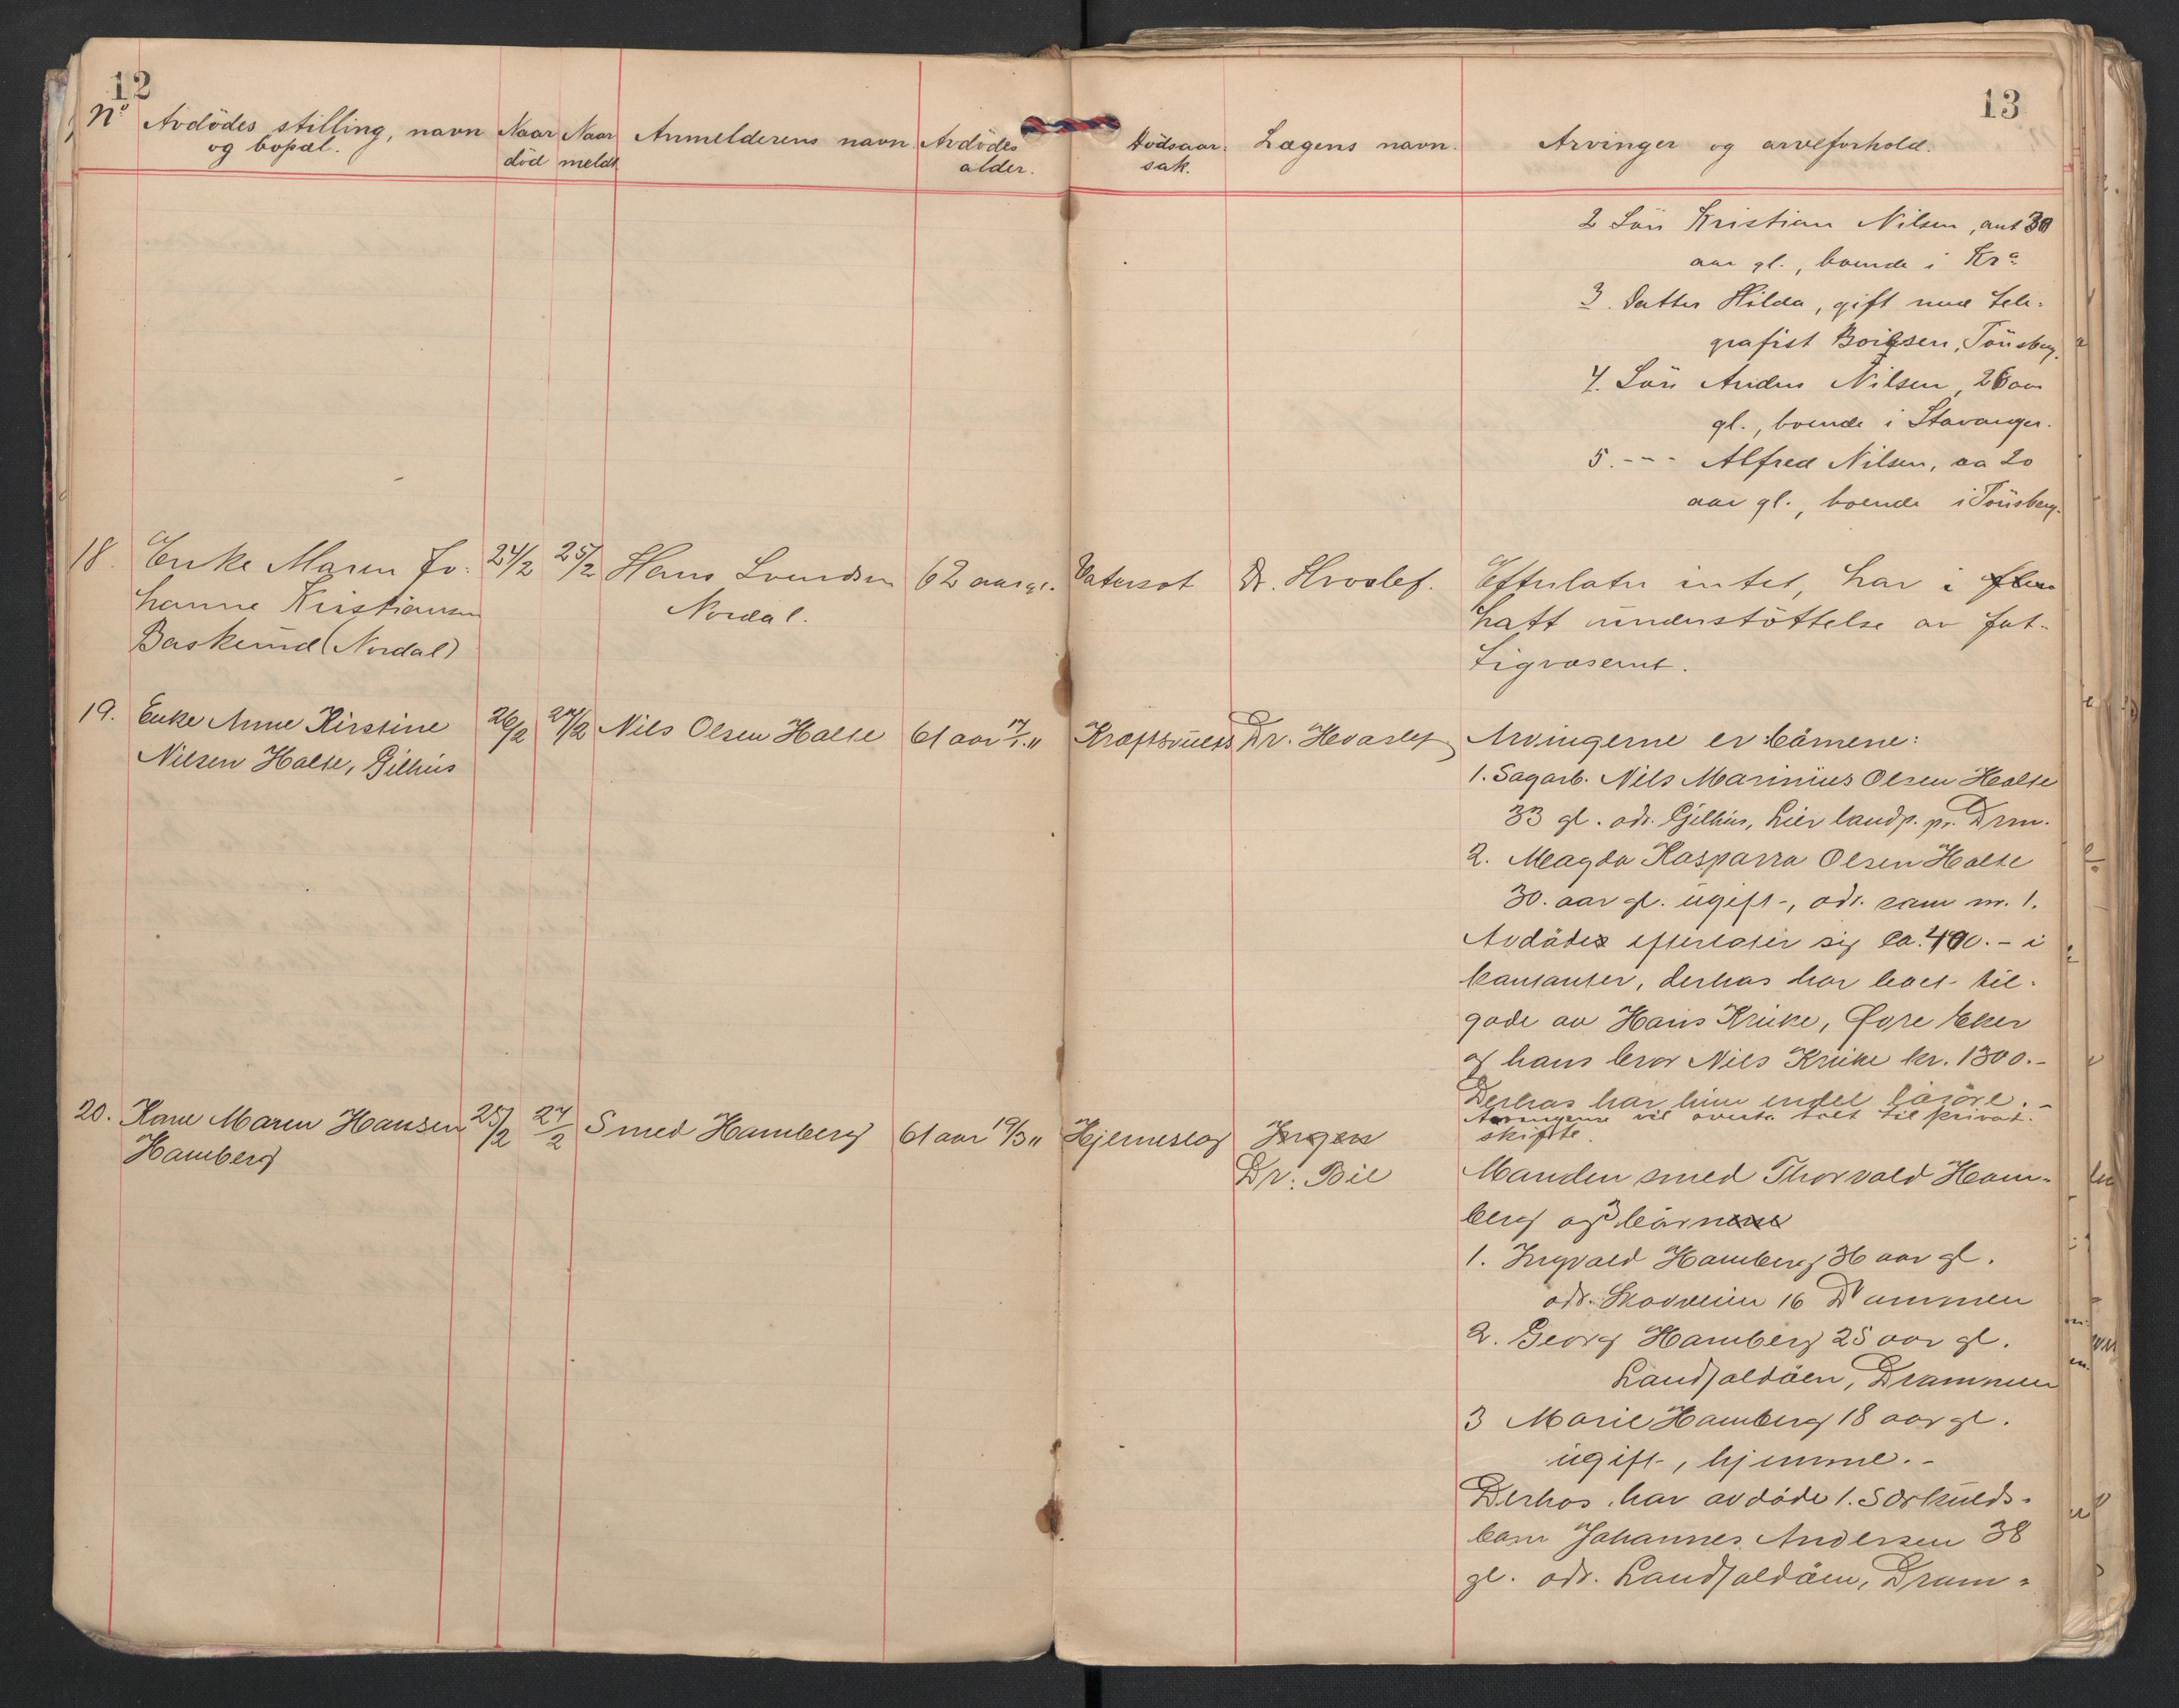 12
13
No Avdödes stilling, navn og bopæl.
Naar død
Naar meldt
Anmelderens navn.
Avdödes alder.
Dödsaar-
sak.
Lægens navn.
Arvinger og arveforhold.
2 Sön Kristian Nilsen, ant 30
aar gl., boende i Kra
3. Datter Hilda, gift med tele-
grafist Boilesen, Tönsberg.
4. Sön Anders Nilsen, 26 aar
gl., boende i Stavanger.
5. --- Alfred Nilsen, ca 20
aar gl., boende i Tönsberg.
18. Enke Maren Jo-
hanne Kristiansen
Baskerud (Nordal)
24/2
25/2
Hans Svendsen
Nordal.
62 aar gl.
Vatersot
Dr. Hvoslef.
Efterlater intet, har i
hatt understöttelse av fat-
tigvæsenet.
19. Enke Anne Kirstine
Nilsen Halle, Gilhus
26/2
27/2
Nils Olsen Halle
61 aar 17/1 "
Kræftsvulst
Dr. Hvoslef
Arvingerne er börnene:
1. Sagarb. Nils Marinius Olsen Halle
33 gl. adr. Gjelhus, Lier landp. pr. Drm.
2. Magda Kasparra Olsen Halle
30. aar gl. ugift, adr. som nr. 1.
Avdöde efterlater sig ca. 400.- i
kontanter, derhos har boet til-
gode av Hans Krüke, Øvre Eker
og hans bror Nils Krüke kr. 1300.-
Derhos har hun endel lösöre.-
Arvingerne vil overta boet til privat
skifte.
20. Kone Maren Hansen
Hamberg
25/2
27/2
Smed Hamberg
61 aar 19/3 "
Hjerneslag
Ingen
Dr. Bie
Manden smed Thorvald Ham-
berg og 3 börnene
1. Ingvald Hamberg 36 aar gl.
adr. Skovveien 16 Drammen
2. Georg Hamberg 25 aar gl.
Landfaldöen, Drammen
3 Marie Hamberg 18 aar gl.
ugift, hjemme.-
Derhos har avdöde 1. Særkulds-
barn Johannes Andersen 38
gl. adr. Landfaldöen, Dram-